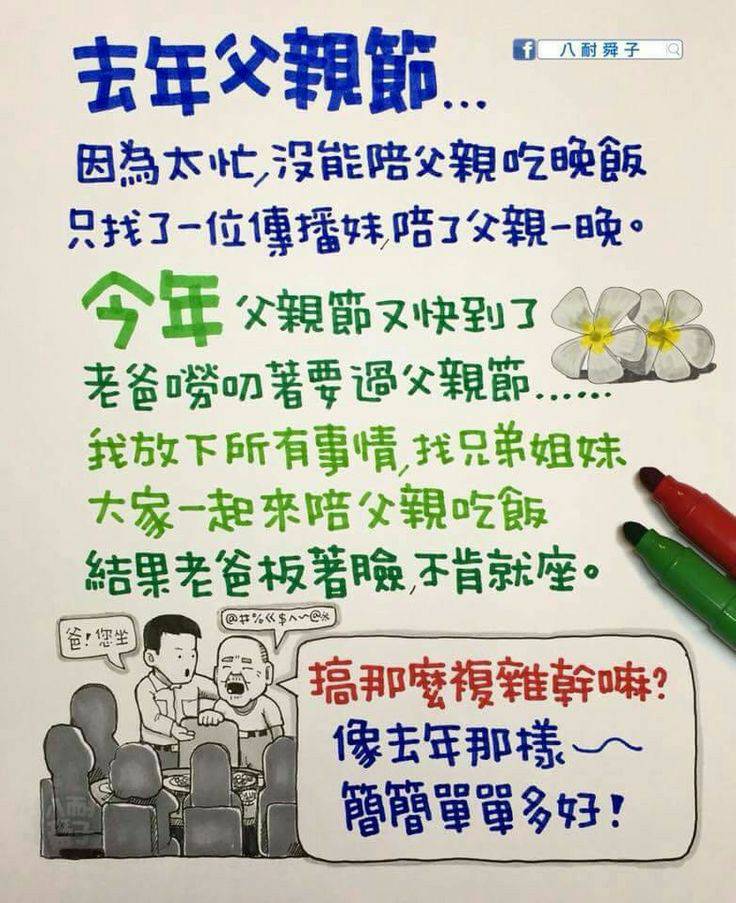 去年父親節...
f 八耐舜子
因為太忙,沒能陪父親吃晚飯
只找了一位傳播妹,陪了父親一晚。
今年父親節又快到了
老爸嘮叨著要過父親節......
我放下所有事情,找兄弟姐妹
大家一起來陪父親吃飯
結果老爸板著臉,不肯就座。
爸!您坐
@#%巜$︿~@*
搞那麼複雜幹嘛?
像去年那樣~
簡簡單單多好!